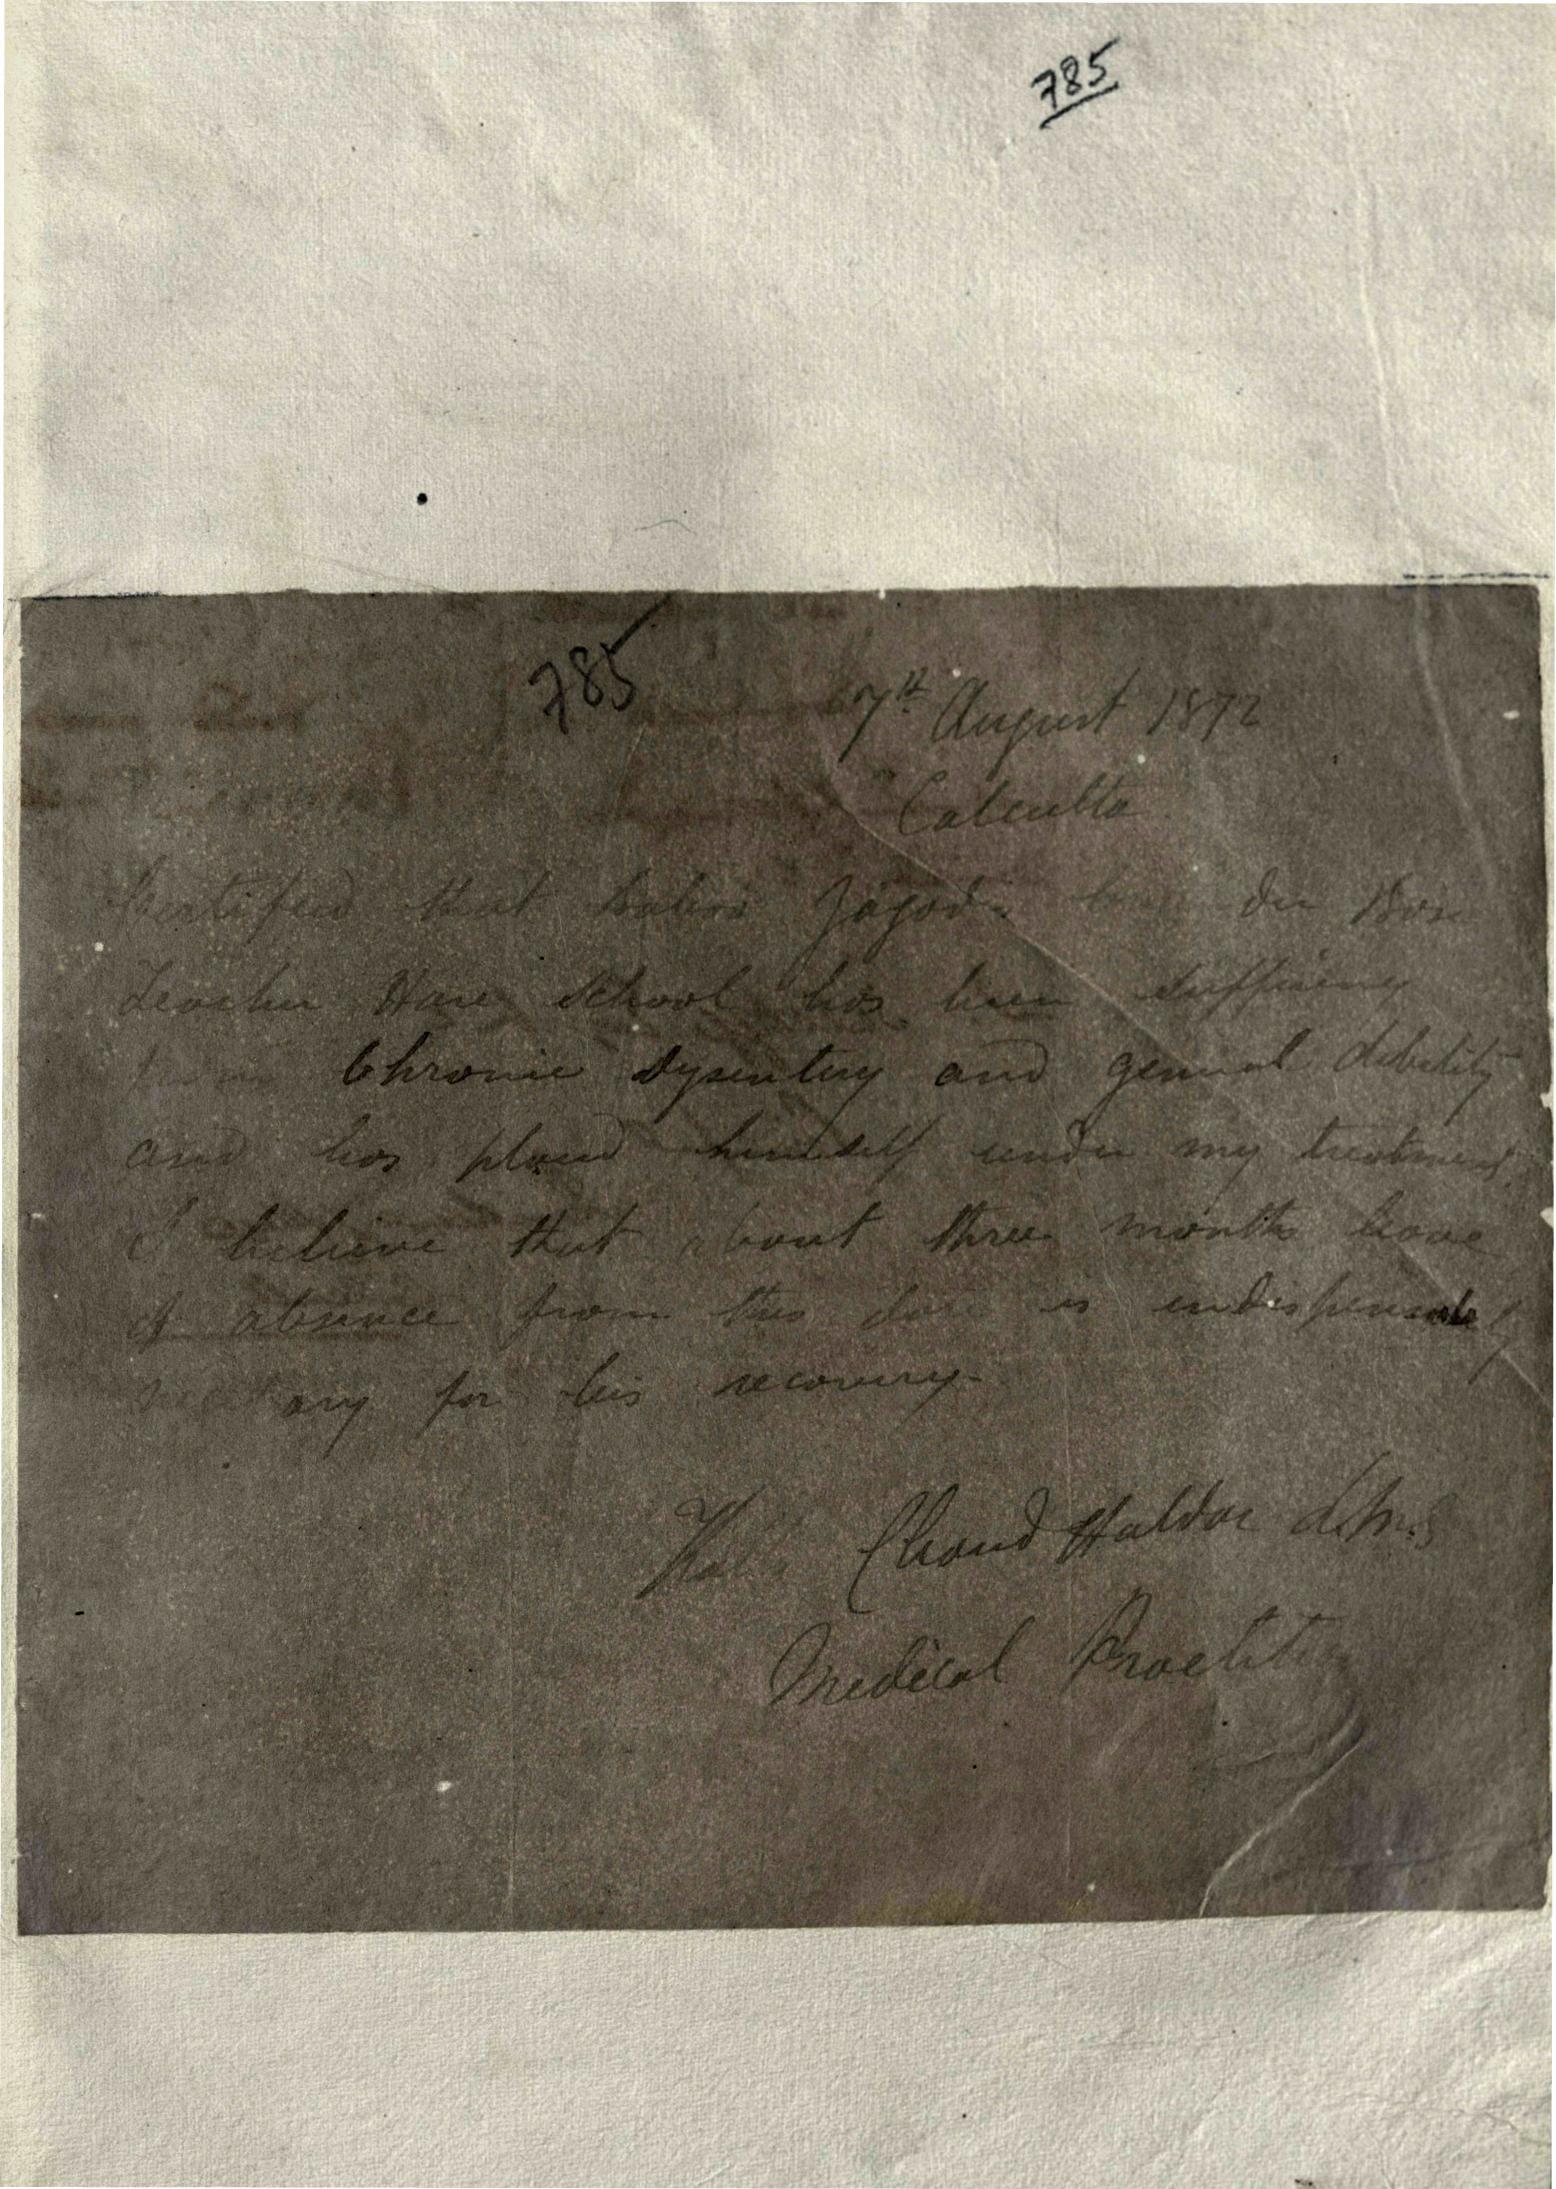 785
785
7th August 1872
Calcutta
Certified that Baboo Bose
Teacher Hare School has been suffering
from Chronic Dysentery and general debility
and has placed himself under my treatment.
I believe that about three months leave
of absence from this date is indispensably
for his recovery.
Chand Haldar L.M.S
Medical